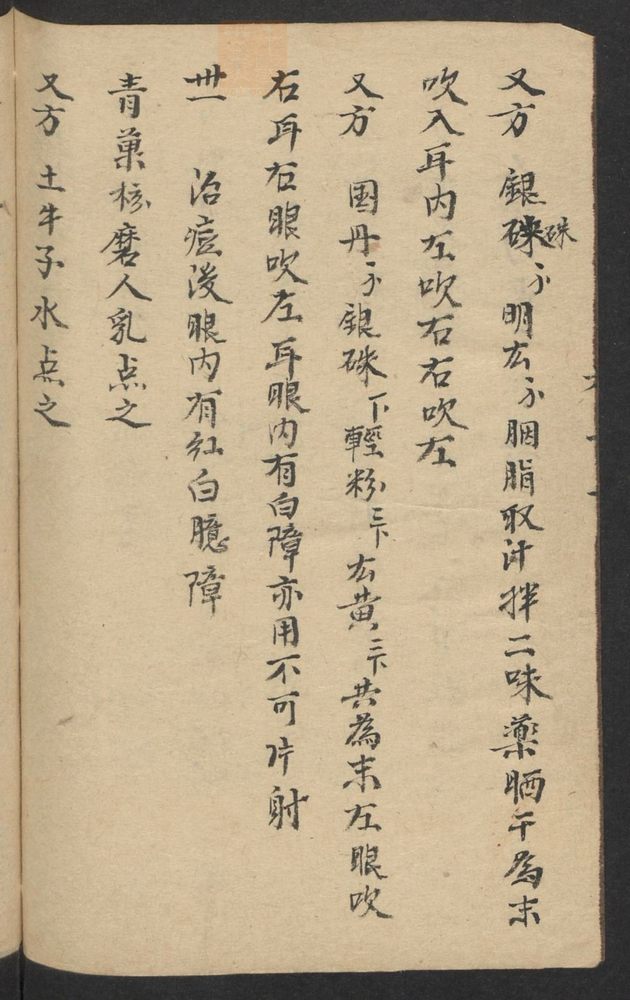 又方 銀硃硃 明厷 胭脂取汁拌二味藥晒干為末
吹入耳内左吹右右吹左
又方 国丹 銀硃 輕粉 厷黄 共為末左眼吹
右耳右眼吹左耳眼内有白障亦用不可片射
卅一 治痘後眼内有红白臆障
青菓核磨人乳点之
又方 土牛子水点之